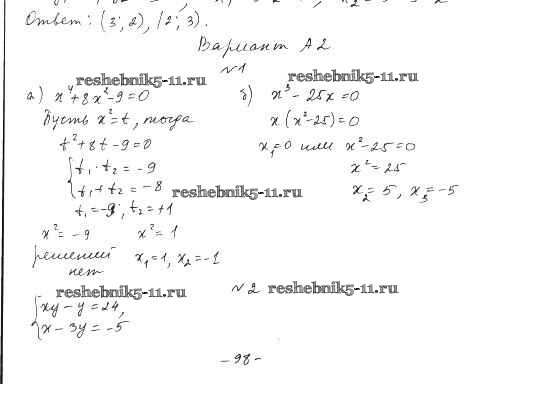 Ответ: (3; 2), (2; 3).
Вариант А2
№1
reshebnik5-11.ru reshebnik5-11.ru
а) x⁴+8x²-9=0
Пусть x²=t, тогда
t²+8t-9=0
{t₁·t₂=-9
t₁+t₂=-8
t₁=-9; t₂=+1
x²=-9 x²=1
решений нет x₁=1, x₂=-1
б) x³-25x=0
x(x²-25)=0
x₁=0 или x²-25=0
x²=25
x₂=5, x₃=-5
reshebnik5-11.ru
reshebnik5-11.ru №2 reshebnik5-11.ru
{xy-y=24,
x-3y=-5
-98-